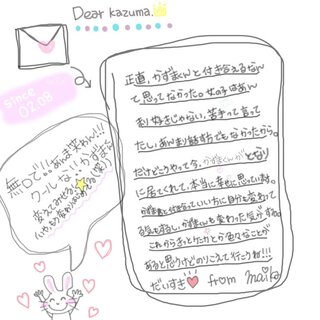 Dear kazuma.
since
02.08
正直、かずまくんと付き合えるなん
て思ってなかった。女の子はあん
まり好きじゃない、苦手って言って
たし、あんまり話す方でもなかったから。
だけどこうやって今、かずまくんがとなり
に居てくれて、本当に幸せに思っています。
かずまくんと付き合っていい方に自分も変わって
る気もするし、かずまくんも変わった気がするの。
これからきっとたくさん色々なことが
あると思うけどのりこえて行こうね!!!
だいすき from maika
無口で!!あんま笑わん!!!
クールな かずまに
変えてみせる